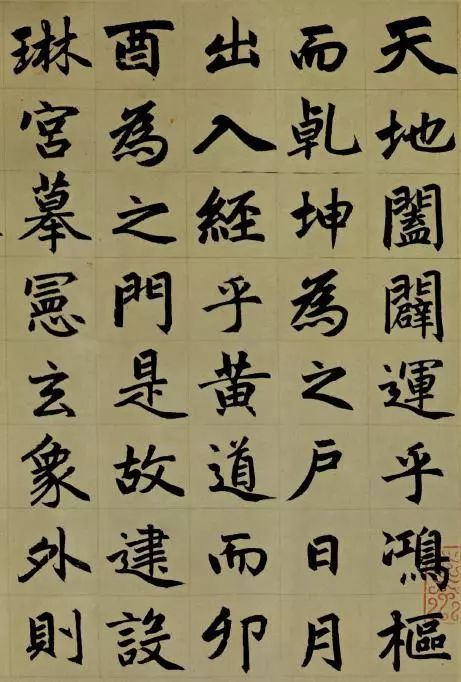 天地闔闢運乎鴻樞
而乹坤為之戶日月
出入經乎黃道而卯
酉為之門是故建設
琳宮摹憲玄象外則